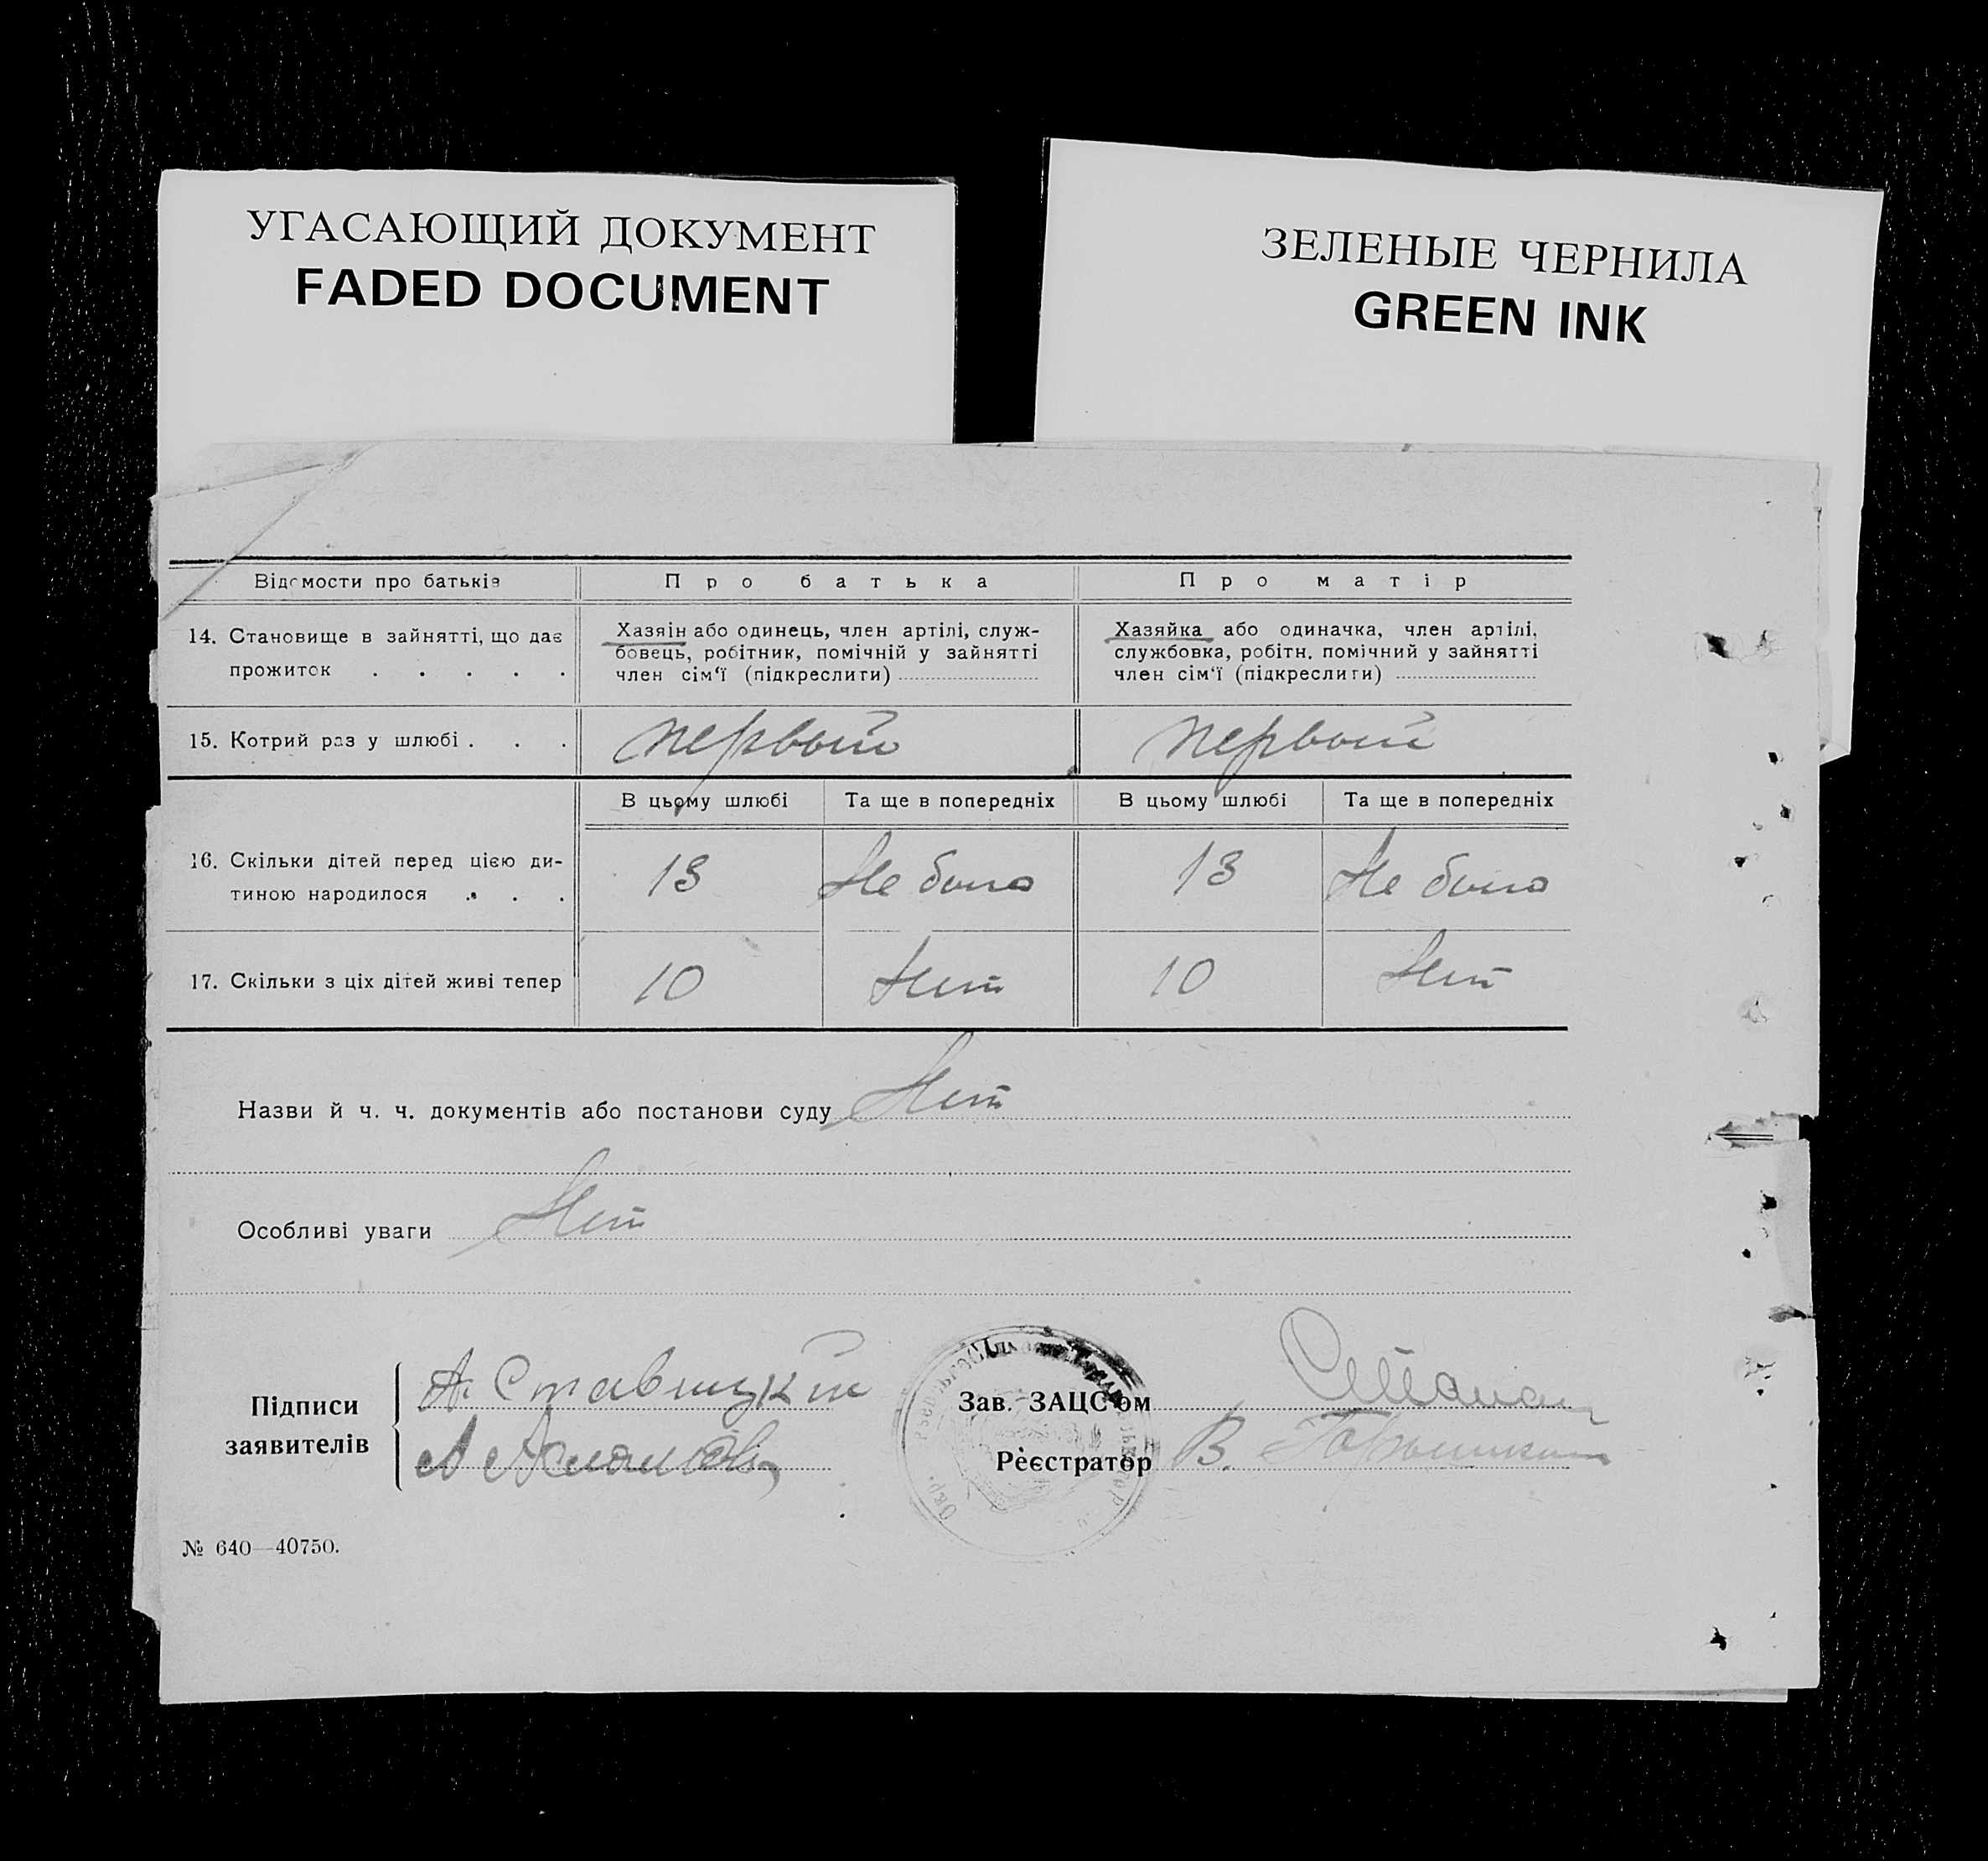 УГАСАЮЩИЙ ДОКУМЕНТ
FADED DOCUMENT
ЗЕЛЕНЫЕ ЧЕРНИЛА
GREEN INK
Відомости про батьків
Про батька
Про матір
14. Становище в зайнятті, що дає
прожиток . . . . .
Хазяін або одинець, член артілі, служ-
бовець, робітник, помічній у зайнятті
член сім'ї (підкреслити)
Хазяйка або одиначка, член артілі,
службовка, робітн. помічний у зайнятті
член сім'ї (підкреслити)
15. Котрий раз у шлюбі . . .
первый
первый
В цьому шлюбі
Та ще в попередніх
В цьому шлюбі
Та ще в попередніх
16. Скільки дітей перед цією ди-
тиною народилося . . .
13
Не было
13
Не было
17. Скільки з ціх дітей живі тепер
10
Нет
10
Нет
Назви й ч. ч. документів або постанови суду Нет
Особливі уваги Нет
Підписи
заявителів
А. Ставицкий
Зав. ЗАЦС'ом
Реєстратор В.
№ 640—40750.